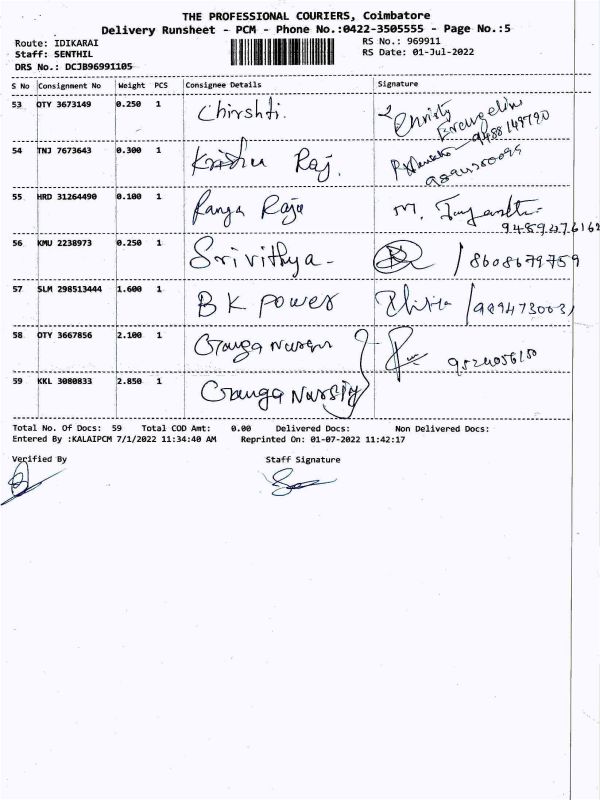 THE PROFESSIONAL COURIERS, Coimbatore
Delivery Runsheet - PCM - Phone No.:0422-3505555 - Page No.:5
Route: IDIKARAI RS No.: 969911
Staff: SENTHIL RS Date: 01-Jul-2022
DRS No.: DCJB96991105
S No Consignment No Weight PCS Consignee Details Signature
53 OTY 3673149 0.250 1 Chirshti. Christy
9488149790
54 TNJ 7673643 0.300 1 Krishu Raj.
55 HRD 31264490 0.100 1 Ranga Raju M.
9489476162
56 KMU 2238973 0.250 1 Srivithya - / 8608679759
57 SLM 298513444 1.600 1 BK Power / 9894730031
58 OTY 3667856 2.100 1 Ganga
59 KKL 3080833 2.850 1 Ganga
Total No. Of Docs: 59 Total COD Amt: 0.00 Delivered Docs: Non Delivered Docs:
Entered By :KALAIPCM 7/1/2022 11:34:40 AM Reprinted On: 01-07-2022 11:42:17
Verified By Staff Signature